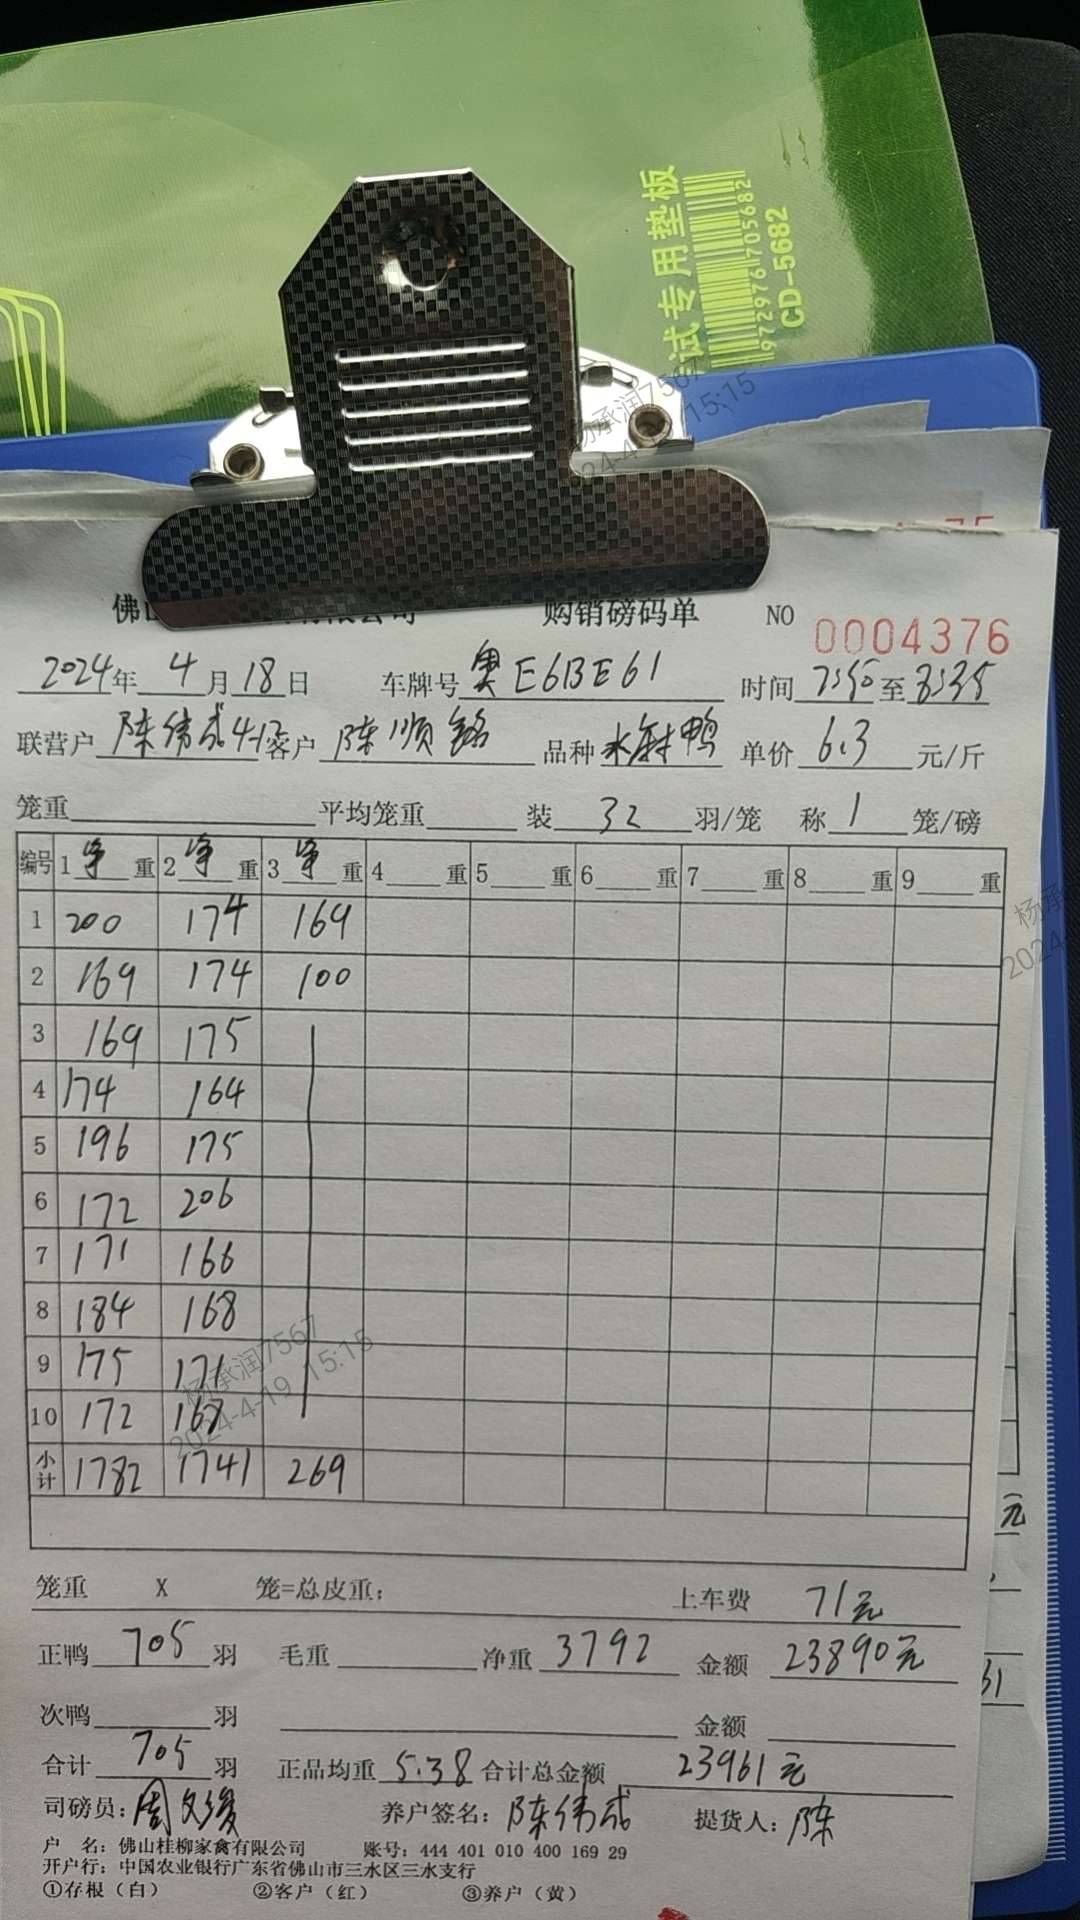 试专用垫板
972976705682
CD-5682
杨承润7567
2024-4-19 15:15
购销磅码单 NO 0004376
2024年 4月18日 车牌号 奥E6BE61 时间 7:50至8:35
联营户 陈伟成4-12 客户 陈顺铭 品种 水麻鸭 单价 6.3 元/斤
笼重 平均笼重 装 32 羽/笼 称 1 笼/磅
编号 1 净 重 2 净 重 3 净 重 4 重 5 重 6 重 7 重 8 重 9 重
1 200 174 169
2 169 174 100
3 169 175
4 174 164
5 196 175
6 172 206
7 171 166
8 184 168
9 175 171
10 172 168
小计 1782 1741 269
笼重 X 笼=总皮重: 上车费 71元
正鸭 705 羽 毛重 净重 3792 金额 23890元
次鸭 羽 金额
合计 705 羽 正品均重 5.38 合计总金额 23961元
司磅员:周文俊 养户签名:陈伟成 提货人:陈
户 名:佛山桂柳家禽有限公司 账号:444 401 010 400 169 29
开户行:中国农业银行广东省佛山市三水区三水支行
①存根(白) ②客户(红) ③养户(黄)
杨承润7567
2024-4-19 15:15
元
31